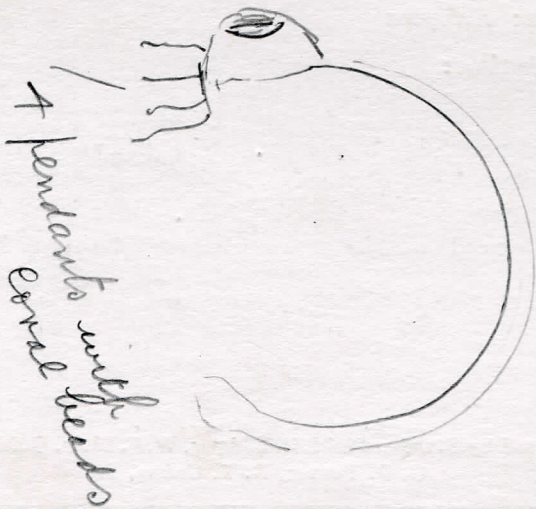 4 pendants with
coral beads